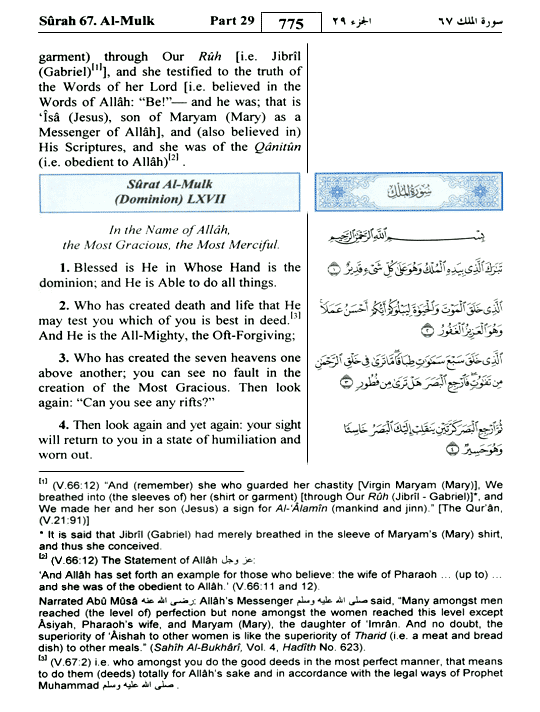 Sûrah 67. Al-Mulk Part 29 775 الجزء ٢٩ سورة الملك ٦٧
garment) through Our Rûh [i.e. Jibrîl
(Gabriel)[1]], and she testified to the truth of
the Words of her Lord [i.e. believed in the
Words of Allâh: “Be!”— and he was; that is
‘Îsâ (Jesus), son of Maryam (Mary) as a
Messenger of Allâh], and (also believed in)
His Scriptures, and she was of the Qânitûn
(i.e. obedient to Allâh)[2] .
Sûrat Al-Mulk
(Dominion) LXVII
سُورَةُ المُلْكِ
In the Name of Allâh,
the Most Gracious, the Most Merciful.
بِسْمِ اللَّهِ الرَّحْمَٰنِ الرَّحِيمِ
1. Blessed is He in Whose Hand is the
dominion; and He is Able to do all things.
تَبَٰرَكَ ٱلَّذِى بِيَدِهِ ٱلْمُلْكُ وَهُوَ عَلَىٰ كُلِّ شَىْءٍ قَدِيرٌ ١
2. Who has created death and life that He
may test you which of you is best in deed.[3]
And He is the All-Mighty, the Oft-Forgiving;
ٱلَّذِى خَلَقَ ٱلْمَوْتَ وَٱلْحَيَوٰةَ لِيَبْلُوَكُمْ أَيُّكُمْ أَحْسَنُ عَمَلًا
وَهُوَ ٱلْعَزِيزُ ٱلْغَفُورُ ٢
3. Who has created the seven heavens one
above another; you can see no fault in the
creation of the Most Gracious. Then look
again: “Can you see any rifts?”
ٱلَّذِى خَلَقَ سَبْعَ سَمَٰوَٰتٍ طِبَاقًا مَّا تَرَىٰ فِى خَلْقِ ٱلرَّحْمَٰنِ
مِن تَفَٰوُتٍ فَٱرْجِعِ ٱلْبَصَرَ هَلْ تَرَىٰ مِن فُطُورٍ ٣
4. Then look again and yet again: your sight
will return to you in a state of humiliation and
worn out.
ثُمَّ ٱرْجِعِ ٱلْبَصَرَ كَرَّتَيْنِ يَنقَلِبْ إِلَيْكَ ٱلْبَصَرُ خَاسِئًا
وَهُوَ حَسِيرٌ ٤
[1] (V.66:12) “And (remember) she who guarded her chastity [Virgin Maryam (Mary)], We
breathed into (the sleeves of) her (shirt or garment) [through Our Rûh (Jibrîl - Gabriel)]*, and
We made her and her son (Jesus) a sign for Al-‘Âlamîn (mankind and jinn).” [The Qur’ân,
(V.21:91)]
* It is said that Jibrîl (Gabriel) had merely breathed in the sleeve of Maryam’s (Mary) shirt,
and thus she conceived.
[2] (V.66:12) The Statement of Allâh عز وجل:
‘And Allâh has set forth an example for those who believe: the wife of Pharaoh ... (up to) ...
and she was of the obedient to Allâh.’ (V.66:11 and 12).
Narrated Abû Mûsâ رضي الله عنه: Allâh’s Messenger صلى الله عليه وسلم said, “Many amongst men
reached (the level of) perfection but none amongst the women reached this level except
Âsiyah, Pharaoh’s wife, and Maryam (Mary), the daughter of ‘Imrân. And no doubt, the
superiority of ‘Âishah to other women is like the superiority of Tharid (i.e. a meat and bread
dish) to other meals.” (Sahîh Al-Bukhârî, Vol. 4, Hadîth No. 623).
[3] (V.67:2) i.e. who amongst you do the good deeds in the most perfect manner, that means
to do them (deeds) totally for Allâh’s sake and in accordance with the legal ways of Prophet
Muhammad صلى الله عليه وسلم .